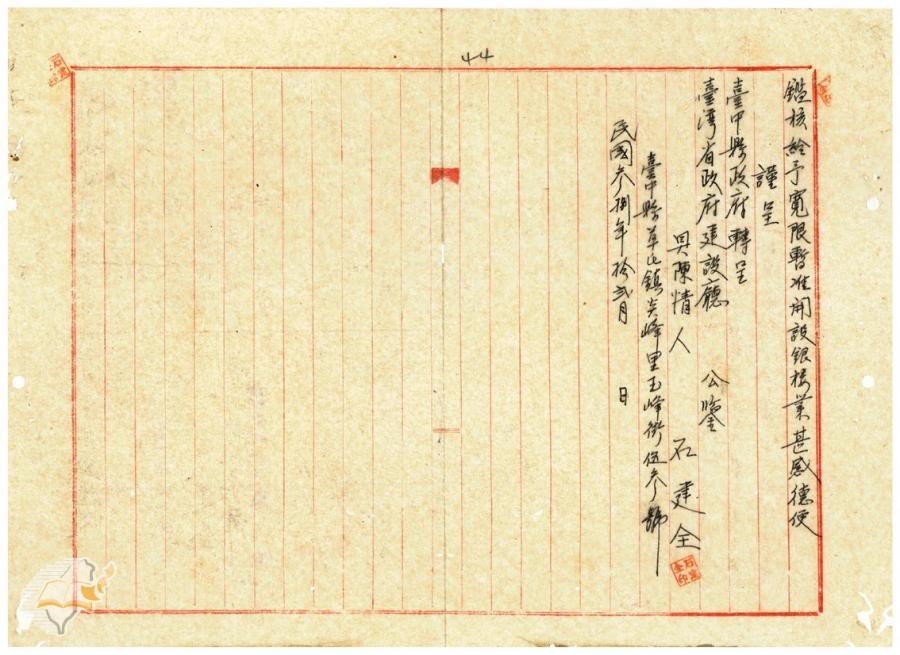 44
鑑核給予寬限暫准開設銀樓業甚感德便
謹呈
臺中縣政府轉呈
臺灣省政府建設廳 公鑒
具陳情人 石建全
臺中縣草屯鎮炎峰里玉峰街伍參號
民國參捌年拾弍月 日